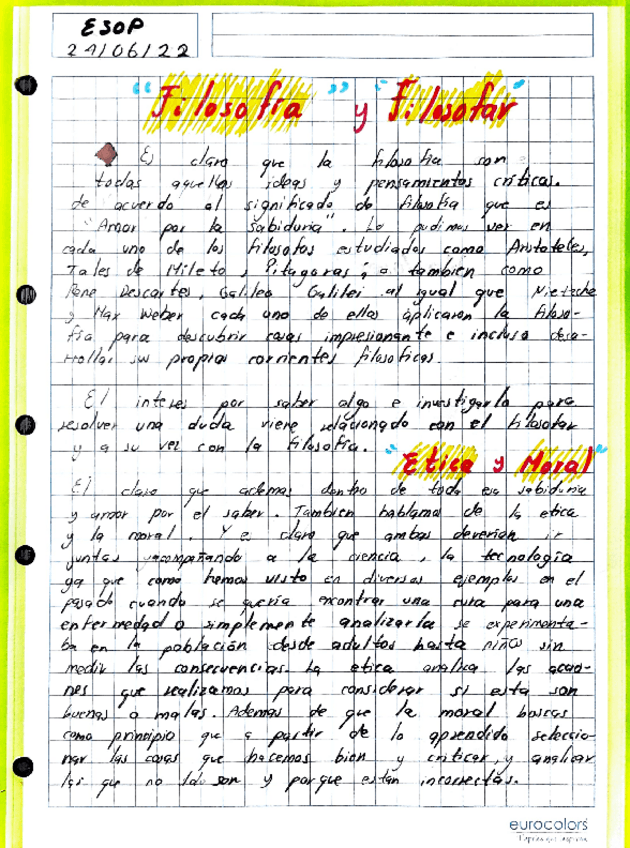 ESOP
21/06/22
"Filosofía" y "Filosofar"
Es claro que la filosofia son
todas aquellas ideas y pensamientos criticos.
de acuerdo al significado de filosofia que es
"Amor por la sabiduria". Lo pudimos ver en
cada uno de los filosofos estudiados como Aristoteles,
Tales de Mileto, Pitagoras; o tambien como
Rene Descartes, Galileo Galilei al igual que Nietzche
y Max Weber cada uno de ellos aplicaron la filoso-
fia para descubrir cosas impresionante e incluso desa-
rrollar sus propias corrientes filosoficas.
El interes por saber algo e investigarlo para
resolver una duda viene relacionado con el filosofar
y a su vez con la filosofia.
"Etica y Moral"
El claro que ademas dentro de toda esa sabiduria
y amor por el saber. Tambien hablamos de la etica
y la moral. Y es claro que ambas deverian ir
juntas acompañando a la ciencia, la tecnologia
ya que como hemos visto en diversos ejemplos en el
pasado cuando se queria encontrar una cura para una
enfermedad o simplemente analizarla se experimenta-
ba en la población desde adultos hasta niños sin
medir las consecuencias. La etica analiza las accio-
nes que realizamos para considerar si esta son
buenas o malas. Ademas de que la moral buscas
como principio que a partir de lo aprendido seleccio-
nar las cosas que hacemos bien y criticar, y analizar
las que no lo son y porque estan incorrectas.
eurocolors